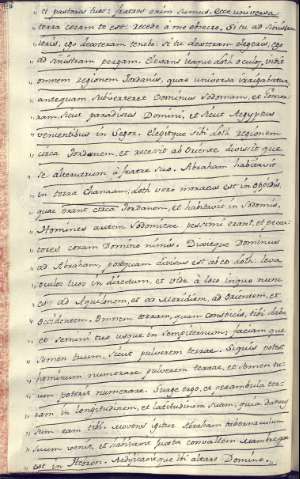 " et pastores tuos: fratres enim sumus. Ecce universa
" terra coram te est: recede à me obsecro. Si tu ad sinistram
" ieris, ego dexteram tenebo: si tu dexteram elegeris, ego
" ad sinistram pergam. Elevans itaque Loth oculos, vidit
" omnem regionem Jordanis, quae universa irrigabatur
" antequam subverteret Dominus Sodomam, et Gomor-
" ram, sicut paradisus Domini, et sicut Aegyptus
" venientibus in Segor. elegitque sibi Loth regionem
" circa Jordanem, et recessit ab Oriente divisique
" se alterutrum à fratre suo. Abraham habitavit
" in terra Chanaam; Loth vero moratus est in oppidis,
" quae erant circa Jordanem, et habitavit in Sodomis.
" Homines autem Sodomitae pessimi erant, et pecca-
" tores coram Domino nimis. Dixitque Dominus
" ad Abraham, postquam divisus est ab eo Loth: Leva
" oculos tuos in directum, et vide à loco in quo nunc
" es, ad Aquilonem, et ad Meridiem, ad Orientem, et
" Occidentem. Omnem terram, quam conspicis, tibi dabo
" et semini tuo usque in sempiternum, faciam que
" semen tuum, sicut pulverem terrae. Siquis potest
" hominum numerare pulverem terrae, et semen tu-
" um poterit numerare. Surge ergo, et perambula ter-
" ram in longitudinem, et latitudinem suam; quia daturus
" sum eam tibi. movens igitur Abraham tabernaculum
" suum venit, et habitavit juxta convallem Mambre quae
" est in Hebron. Aedificavitque ibi altare Domino.